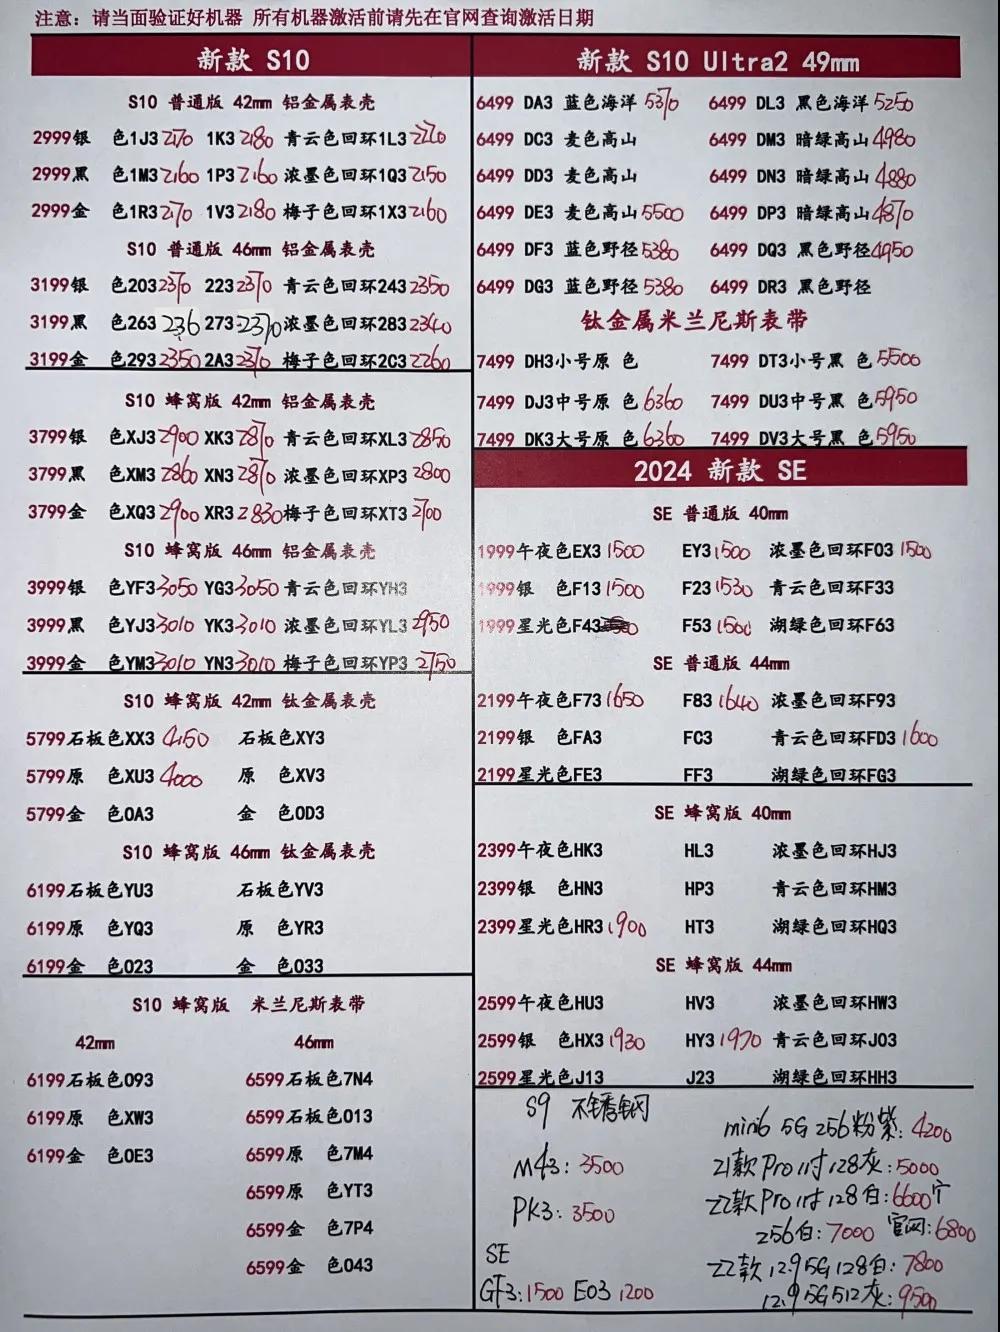 注意：请当面验证好机器 所有机器激活前请先在官网查询激活日期
新款 S10
S10 普通版 42mm 铝金属表壳
2999银 色1J3 2170 1K3 2180 青云色回环1L3 2220
2999黑 色1M3 2160 1P3 2160 浓墨色回环1Q3 2150
2999金 色1R3 2170 1V3 2180 梅子色回环1X3 2160
S10 普通版 46mm 铝金属表壳
3199银 色203 2370 223 2370 青云色回环243 2350
3199黑 色263 236 273 2370 浓墨色回环283 2340
3199金 色293 2350 2A3 2370 梅子色回环2C3 2260
S10 蜂窝版 42mm 铝金属表壳
3799银 色XJ3 2900 XK3 2870 青云色回环XL3 2850
3799黑 色XM3 2860 XN3 2870 浓墨色回环XP3 2800
3799金 色XQ3 2900 XR3 2830 梅子色回环XT3 2700
S10 蜂窝版 46mm 铝金属表壳
3999银 色YF3 3050 YG3 3050 青云色回环YH3
3999黑 色YJ3 3010 YK3 3010 浓墨色回环YL3 2950
3999金 色YM3 3010 YN3 3010 梅子色回环YP3 2750
S10 蜂窝版 42mm 钛金属表壳
5799石板色XX3 4150 石板色XY3
5799原 色XU3 4000 原 色XV3
5799金 色0A3 金 色0D3
S10 蜂窝版 46mm 钛金属表壳
6199石板色YU3 石板色YV3
6199原 色YQ3 原 色YR3
6199金 色023 金 色033
S10 蜂窝版 米兰尼斯表带
42mm 46mm
6199石板色093 6599石板色7N4
6199原 色XW3 6599石板色013
6199金 色0E3 6599原 色7M4
6599原 色YT3
6599金 色7P4
6599金 色043
新款 S10 Ultra2 49mm
6499 DA3 蓝色海洋 5370 6499 DL3 黑色海洋 5250
6499 DC3 麦色高山 6499 DM3 暗绿高山 4980
6499 DD3 麦色高山 6499 DN3 暗绿高山 4880
6499 DE3 麦色高山 5500 6499 DP3 暗绿高山 4870
6499 DF3 蓝色野径 5380 6499 DQ3 黑色野径 4950
6499 DG3 蓝色野径 5380 6499 DR3 黑色野径
钛金属米兰尼斯表带
7499 DH3小号原 色 7499 DT3小号黑 色 5500
7499 DJ3中号原 色 6360 7499 DU3中号黑 色 5950
7499 DK3大号原 色 6360 7499 DV3大号黑 色 5950
2024 新款 SE
SE 普通版 40mm
1999午夜色EX3 1500 EY3 1500 浓墨色回环F03 1500
1999银 色F13 1500 F23 1530 青云色回环F33
1999星光色F43 F53 1500 湖绿色回环F63
SE 普通版 44mm
2199午夜色F73 1650 F83 1640 浓墨色回环F93
2199银 色FA3 FC3 青云色回环FD3 1600
2199星光色FE3 FF3 湖绿色回环FG3
SE 蜂窝版 40mm
2399午夜色HK3 HL3 浓墨色回环HJ3
2399银 色HN3 HP3 青云色回环HM3
2399星光色HR3 1900 HT3 湖绿色回环HQ3
SE 蜂窝版 44mm
2599午夜色HU3 HV3 浓墨色回环HW3
2599银 色HX3 1930 HY3 1970 青云色回环J03
2599星光色J13 J23 湖绿色回环HH3
S9 不锈钢
M43: 3500
PK3: 3500
SE
GF3: 1500 E03 1200
mini6 5G 256粉紫: 4200
21款 Pro 11寸 128灰: 5000
22款 Pro 11寸 128白: 6600个
256白: 7000 官网: 6800
22款 12.9 5G 128白: 7800
12.9 5G 512灰: 9500